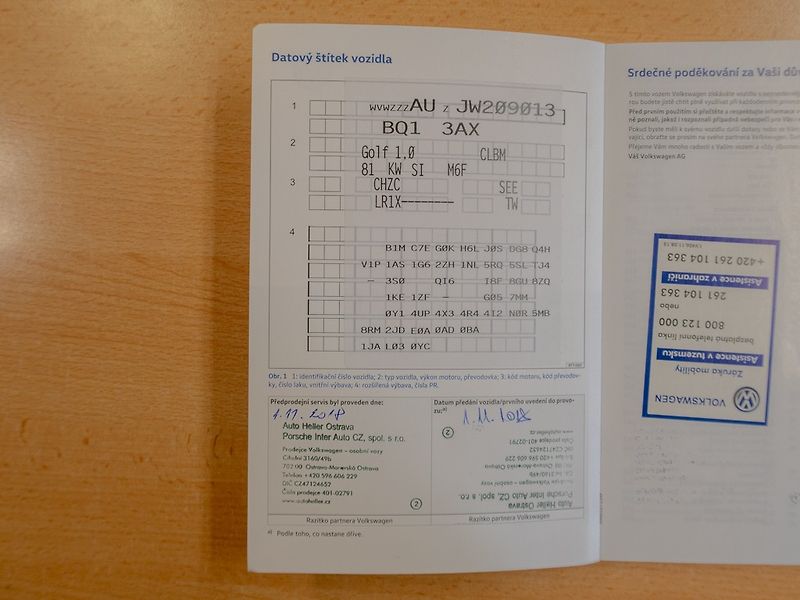 Datový štítek vozidla
1
WVWZZZAU Z JW209013
BQ1 3AX
2
Golf 1.0 CLBM
81 KW SI M6F
3
CHZC SEE
LR1X-------- TW
4
B1M C7E G0K H6L J0S DG8 Q4H
V1P 1AS 1G6 2ZH 1NL 5RQ 5SL TJ4
— 3S0 QI6 I8F 8GU 8ZQ
1KE 1ZF — G05 7MM
0Y1 4UP 4X3 4R4 4I2 N0R 5MB
8RM 2JD E0A 0AD 0BA
1JA L03 0YC
Obr. 1 1: identifikační číslo vozidla; 2: typ vozidla, výkon motoru, převodovka; 3: kód motoru, kód převodov-
ky, číslo laku, vnitřní výbava; 4: rozšířená výbava, čísla PR.
Předprodejní servis byl proveden dne:
1.11.2018
Auto Heller Ostrava
Porsche Inter Auto CZ, spol. s r.o.
Prodejce Volkswagen – osobní vozy
Cihelní 3160/49b
702 00 Ostrava-Moravská Ostrava
Telefon +420 596 606 229
DIČ CZ47124652
Číslo prodejce 401-02791
www.autoheller.cz
2
Razítko partnera Volkswagen
Datum předání vozidla/prvního uvedení do provo-
zu:a)
1.11.2018
2
Auto Heller Ostrava
Porsche Inter Auto CZ, spol. s r.o.
Prodejce Volkswagen – osobní vozy
Cihelní 3160/49b
702 00 Ostrava-Moravská Ostrava
Telefon +420 596 606 229
DIČ CZ47124652
Číslo prodejce 401-02791
www.autoheller.cz
Razítko partnera Volkswagen
a) Podle toho, co nastane dříve.
Srdečné poděkování za Vaši dův
S tímto vozem Volkswagen získáváte vozidlo s
rou budete jistě chtít plně využívat při každodenním
Před prvním použitím si přečtěte a respektujte informace
ně poznali, jakož i rozpoznali případné nebezpečí pro Vás
Pokud byste měli k svému vozidlu další dotazy nebo se Vám
vající, obraťte se prosím na svého partnera Volkswagen.
Přejeme Vám mnoho radosti s Vaším vozem a vždy
Váš Volkswagen AG
VOLKSWAGEN
Záruka mobility
Asistence v tuzemsku
bezplatná telefonní linka
800 123 000
nebo
261 104 363
Asistence v zahraničí
+420 261 104 363